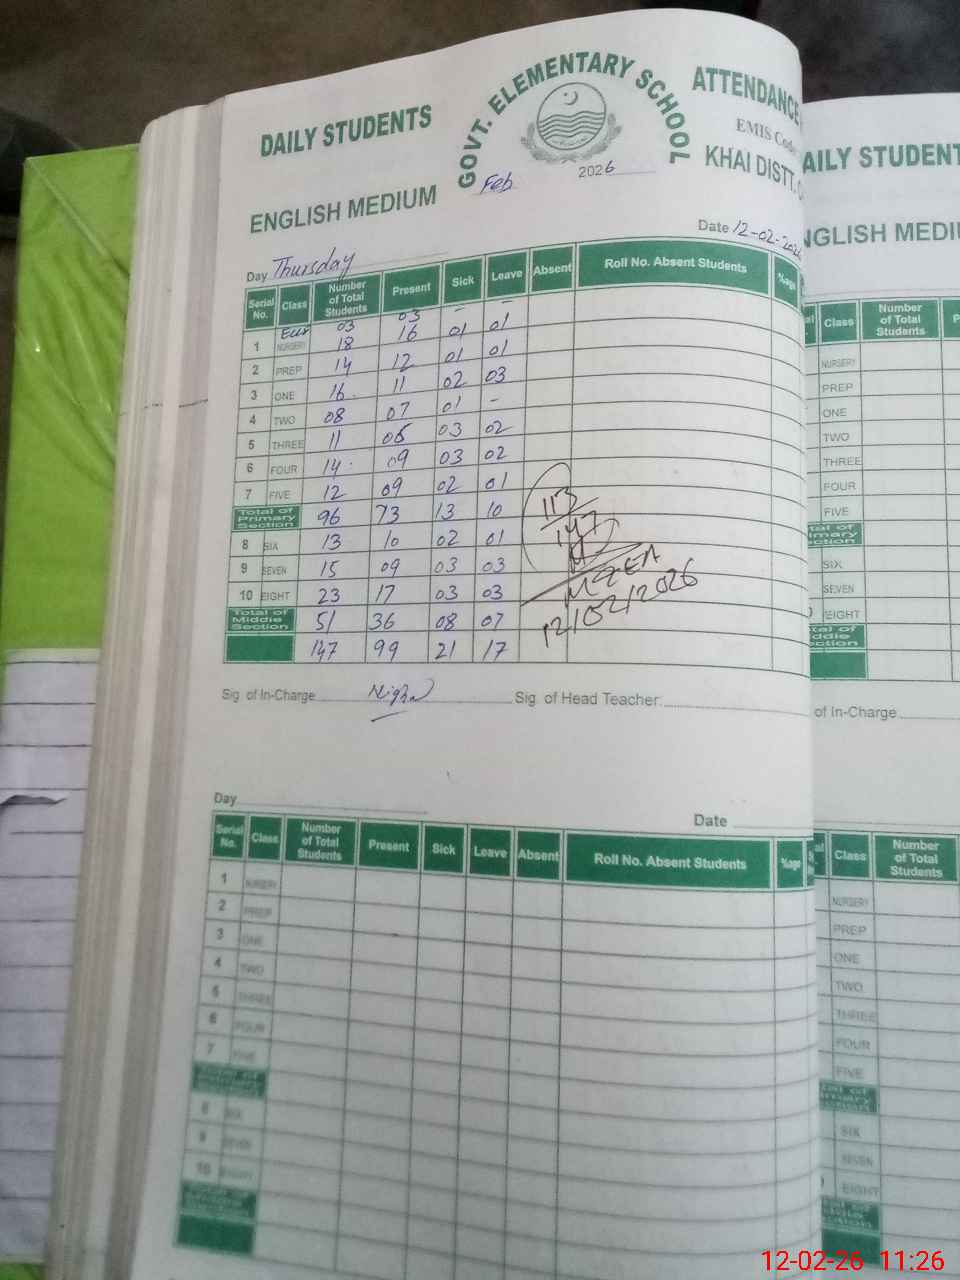 DAILY STUDENTS
GOVT. ELEMENTARY SCHOOL
ATTENDANCE
EMIS Code
KHAI DISTT.
ENGLISH MEDIUM
Feb 2026
Day Thursday Date 12-02-2026
Serial No. Class Number of Total Students Present Sick Leave Absent Roll No. Absent Students %age
03 03 - -
1 NURSERY 18 16 01 01
2 PREP 14 12 01 01
3 ONE 16 11 02 03
4 TWO 08 07 01 -
5 THREE 11 06 03 02
6 FOUR 14 09 03 02
7 FIVE 12 09 02 01
Total of Primary Section 96 73 13 10
8 SIX 13 10 02 01
9 SEVEN 15 09 03 03
10 EIGHT 23 17 03 03
Total of Middle Section 51 36 08 07
147 99 21 17
113
147
12/02/2026
Sig. of In-Charge Sig. of Head Teacher:
Day Date
Serial No. Class Number of Total Students Present Sick Leave Absent Roll No. Absent Students %age
1 NURSERY
2 PREP
3 ONE
4 TWO
5 THREE
6 FOUR
7 FIVE
8 SIX
9 SEVEN
10 EIGHT
AILY STUDENT
NGLISH MEDI
Class Number of Total Students P
NURSERY
PREP
ONE
TWO
THREE
FOUR
FIVE
SIX
SEVEN
EIGHT
of In-Charge
Class Number of Total Students
NURSERY
PREP
ONE
TWO
THREE
FOUR
FIVE
SIX
SEVEN
EIGHT
12-02-26 11:26